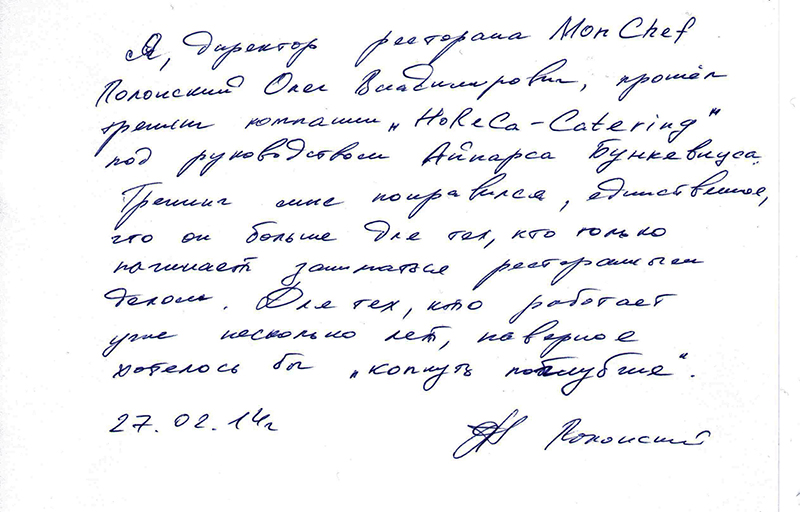 Я, директор ресторана MonChef
Полонский Олег Владимирович, прошёл
тренинг компании „HoReCa-Catering"
под руководством Айнарса Бункевиуса.
Тренинг мне понравился, единственное,
что он больше для тех, кто только
начинает заниматься ресторанным
делом. Для тех, кто работает
уже несколько лет, наверное
хотелось бы „копнуть поглубже".
27.02.14г Полонский